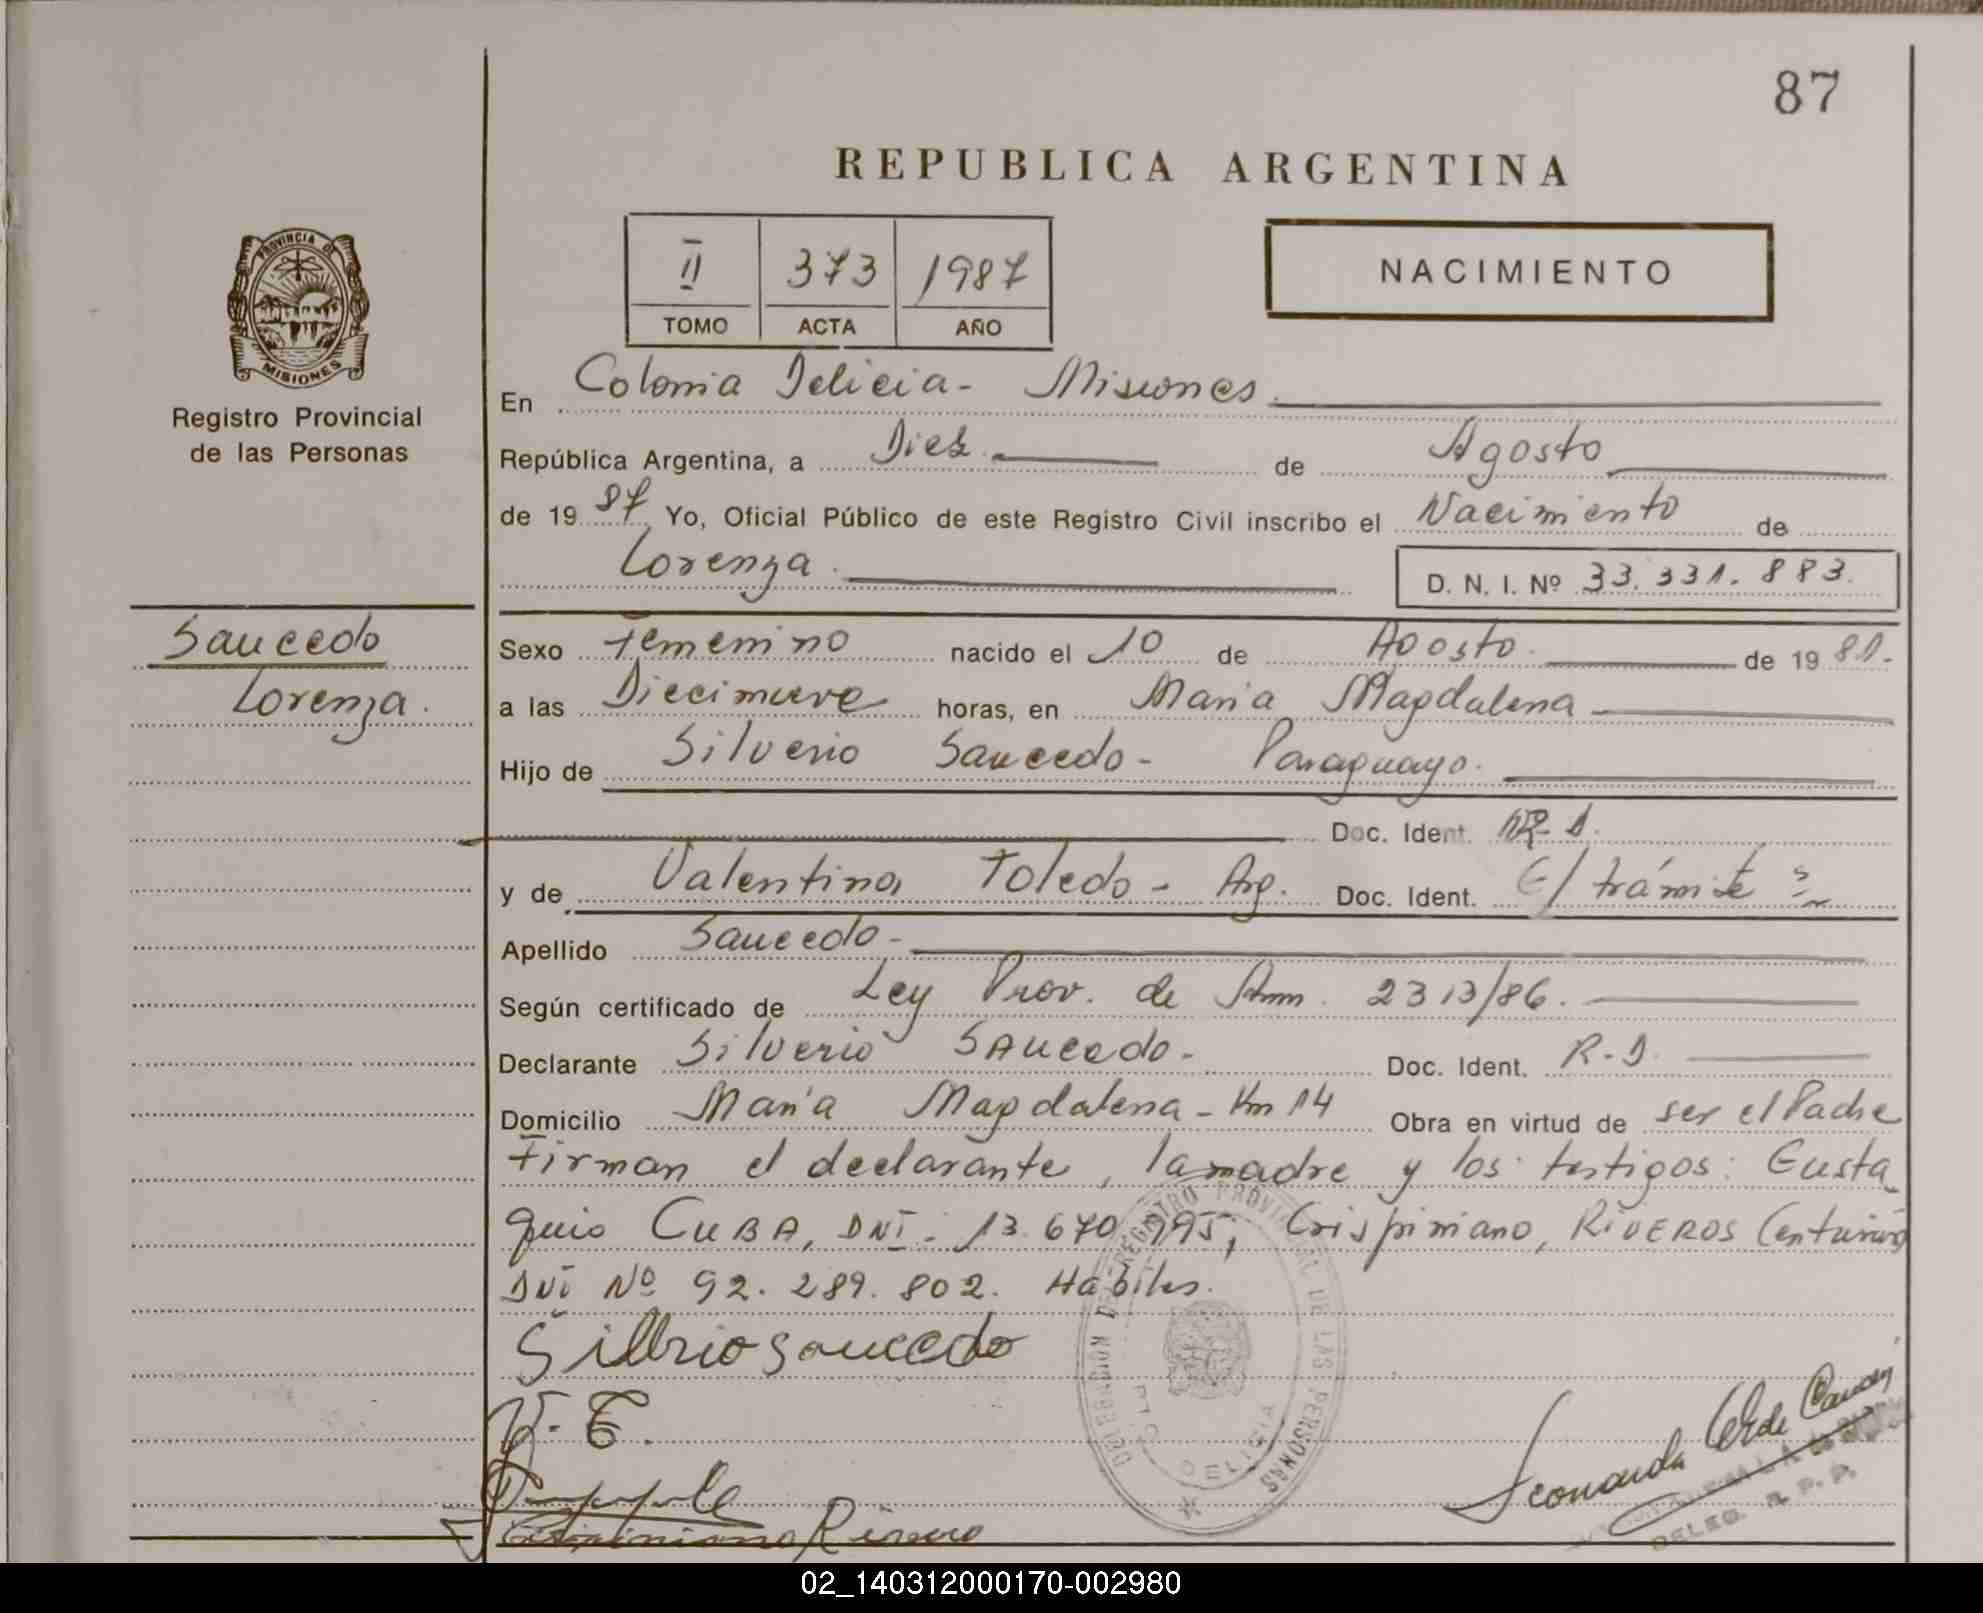 87
REPUBLICA ARGENTINA
II 373 1987
TOMO ACTA AÑO
NACIMIENTO
PROVINCIA DE
MISIONES
Registro Provincial
de las Personas
En Colonia Delicia - Misiones
República Argentina, a Diez de Agosto
de 19 87 Yo, Oficial Público de este Registro Civil inscribo el Nacimiento de
Lorenza.
D. N. I. Nº 33.331.883.
Saucedo
Lorenza.
Sexo Femenino nacido el 10 de Agosto de 19
a las Diecinueve horas, en María Magdalena
Hijo de Silverio Saucedo - Paraguayo.
Doc. Ident.
y de Valentina Toledo - Arg. Doc. Ident. E/ trámite
Apellido Saucedo -
Según certificado de Ley Prov. de Amn. 2313/86.
Declarante Silverio Saucedo. Doc. Ident. R-D.
Domicilio María Magdalena - Km 14 Obra en virtud de ser el Padre
Firman el declarante, la madre y los testigos: Eusta
quio CUBA, DNI - 13.670.995, Crispiniano, RIVEROS Centurión
DNI Nº 92.289.802. Habiles.
Silbrio Saucedo
V. T.
Crispiniano Rivero
DELEGACION DEL REGISTRO PROVINCIAL DE LAS PERSONAS
DELICIA
Leonarda
DELEG. R. P. P.
02_140312000170-002980